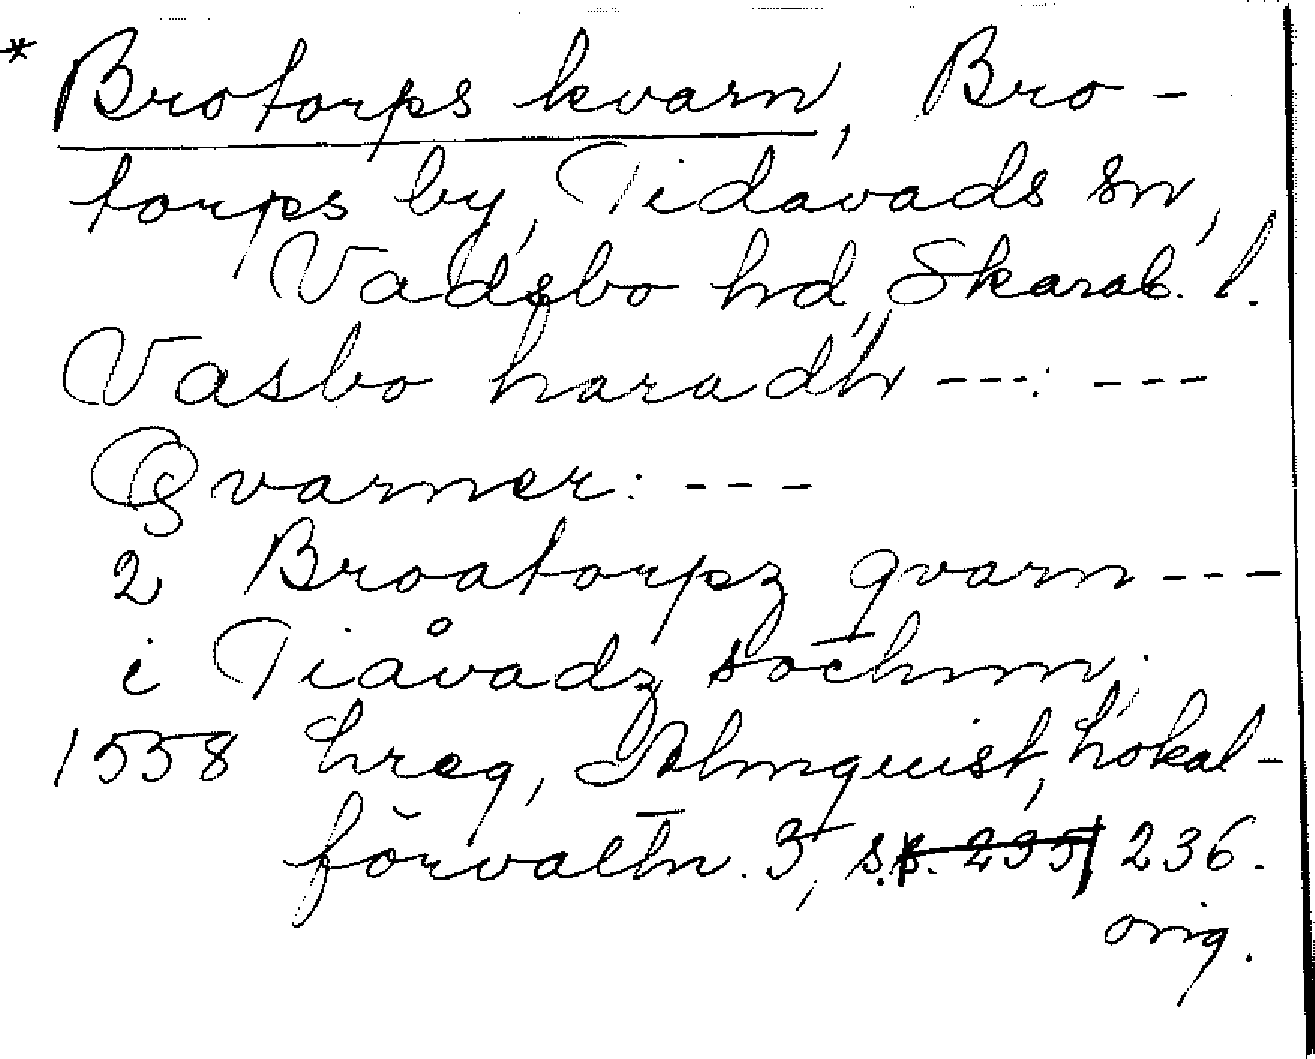 * Brotorps kvarn, Bro-
torps by, Tidavads sn,
Vadsbo hd, Skarab. l.
Vasbo haradh ---: ---
Qvarner: ---
2 Broatorpz qvarn ---
i Tiåvadz sochnn;
1558 hreg, Almquist, Lokal-
förvaltn. 3, s. 236.
orig.